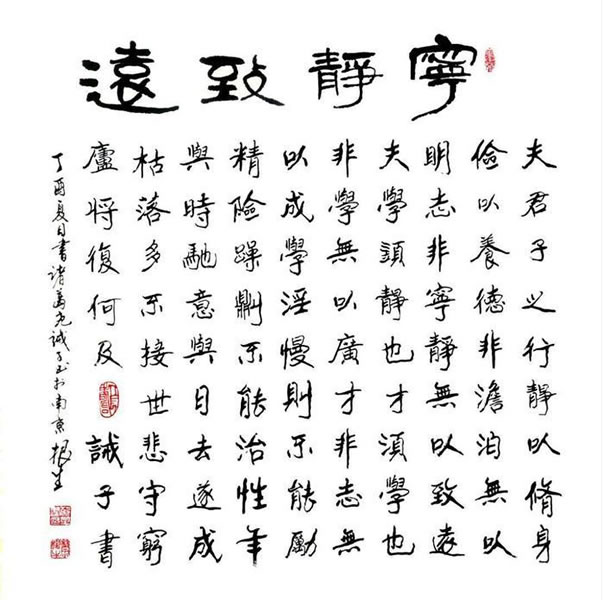 寧靜致遠
夫君子之行靜以脩身
儉以養德非澹泊無以
明志非寧靜無以致遠
夫學須靜也才須學也
非學無以廣才非志無
以成學淫慢則不能勵
精險躁則不能治性年
與時馳意與日去遂成
枯落多不接世悲守窮
廬將復何及 誡子書
丁酉夏日書諸葛亮誡子書於南京根生